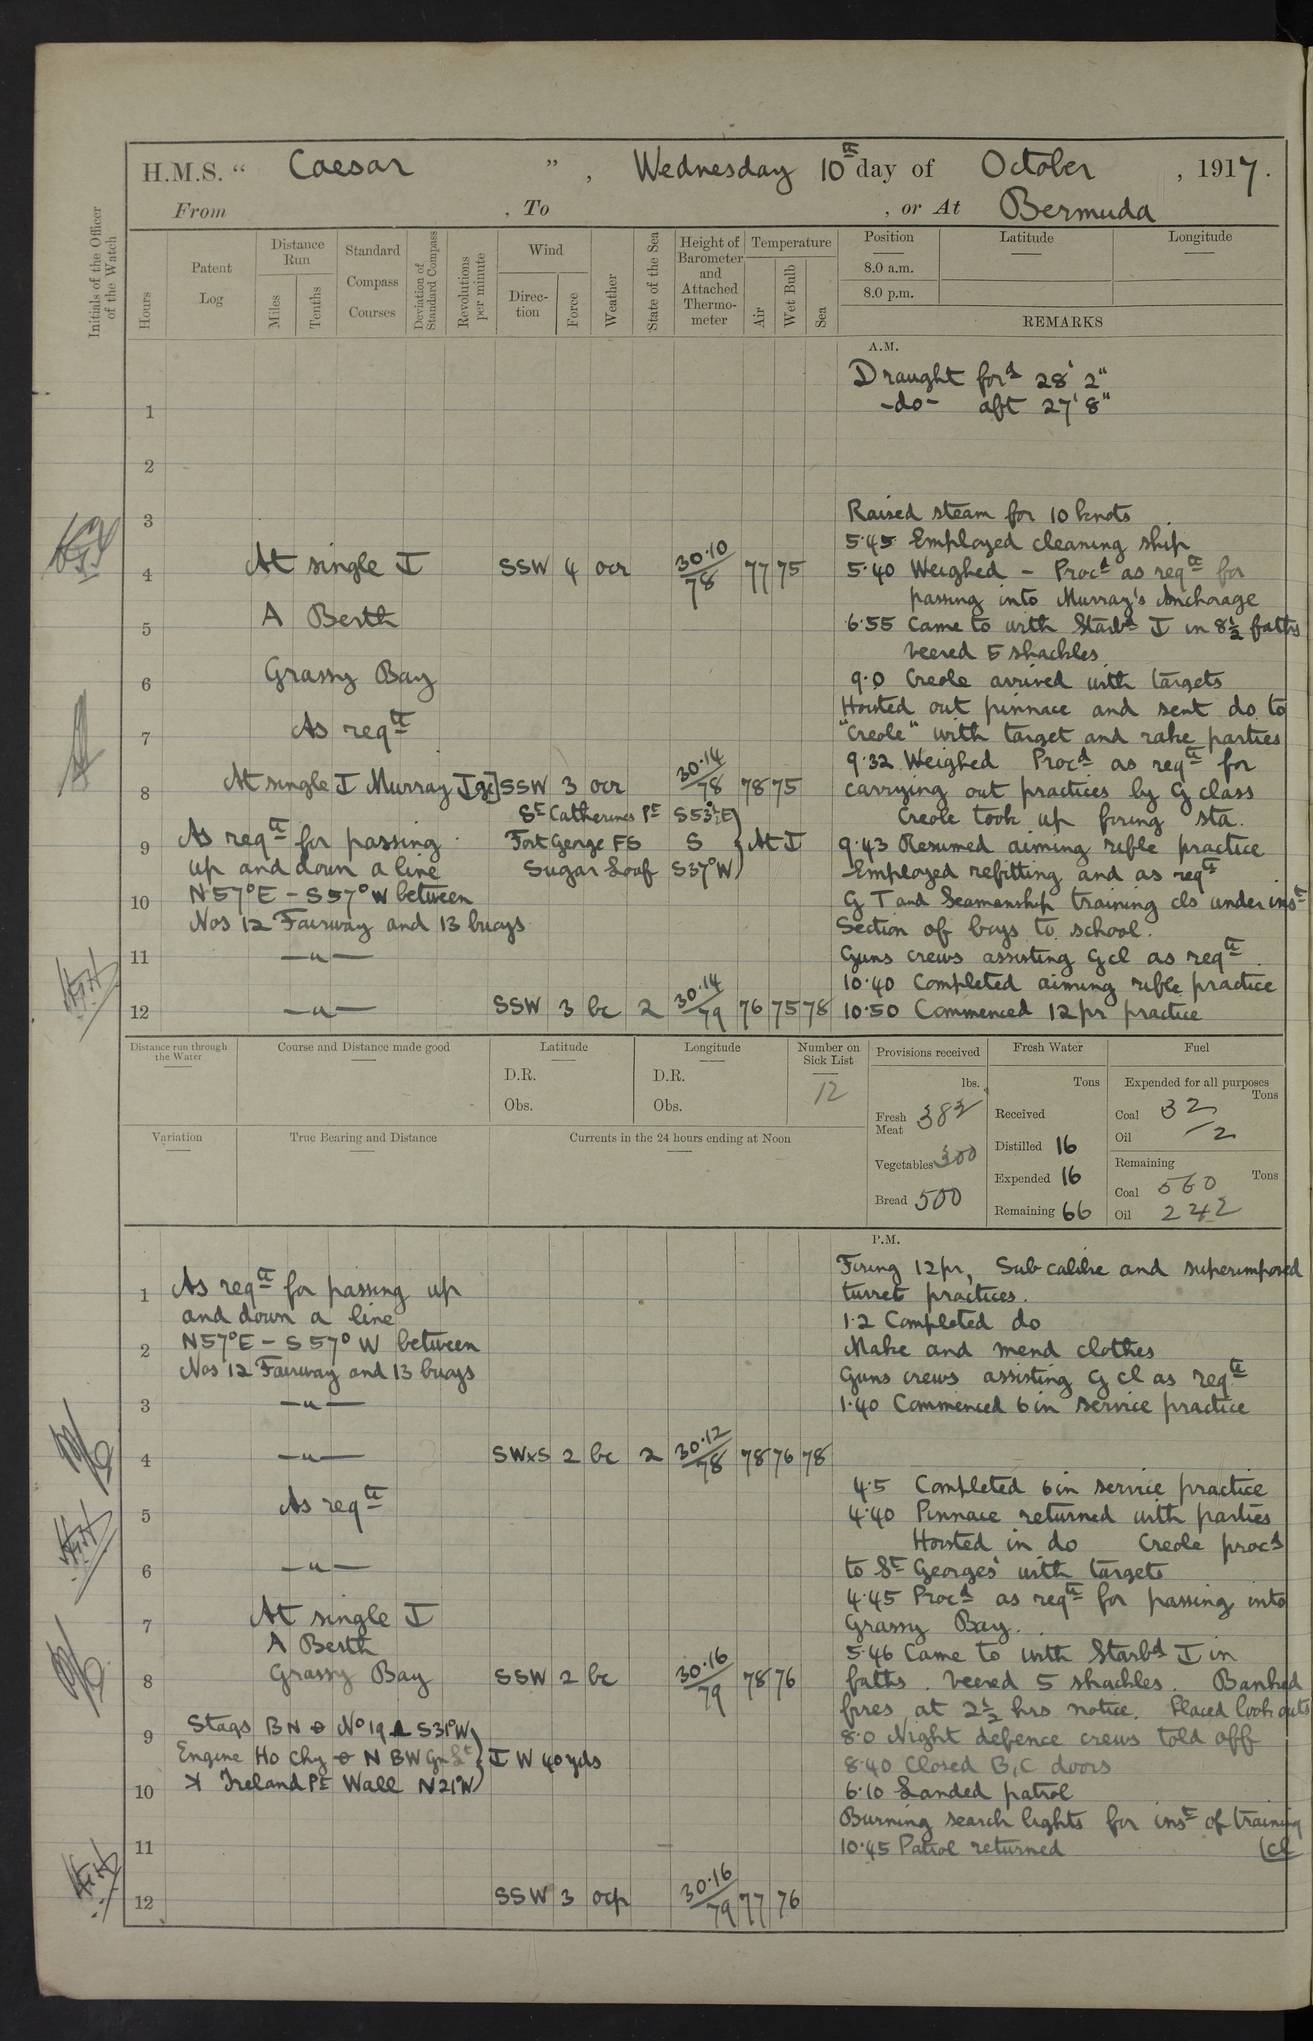 H.M.S. “ Caesar ” , Wednesday 10th day of October , 1917.
From , To , or At Bermuda
Initials of the Officer of the Watch
Hours
Patent Log
Distance Run
Miles
Tenths
Standard Compass Courses
Deviation of Standard Compass
Revolutions per minute
Wind
Direc-tion
Force
Weather
State of the Sea
Height of Barometer and Attached Thermo-meter
Temperature
Air
Wet Bulb
Sea
Position Latitude Longitude
8.0 a.m.
8.0 p.m.
REMARKS
A.M.
Draught ford 28' 2"
1 -do- aft 27' 8"
2
Raised steam for 10 knots
3
5.45 Employed cleaning ship
4 At single I SSW 4 ocr 30.10/78 77 75 5.40 Weighed - Procd as reqte for
passing into Murray's Anchorage
5 A Berth 6.55 Came to with Starbd I in 8½ faths
veered 5 shackles
6 Grassy Bay 9.0 Creole arrived with targets
Hoisted out pinnace and sent do to
7 As reqte "Creole" with target and rake parties
9.32 Weighed Procd as reqte for
8 At single I Murray I ge] SSW 3 ocr 30.14/78 78 75 carrying out practices by G class
St Catherines Pt S53½E Creole took up firing sta.
9 As reqte for passing Fort George FS S } At I 9.43 Resumed aiming rifle practice
up and down a line Sugar Loaf S37°W Employed refitting and as reqte
10 N57°E - S57°W between G T and Seamanship training cls under inst
Nos 12 Fairway and 13 buoys Section of boys to school.
11 —"— Guns crews assisting G cl as reqte.
10.40 Completed aiming rifle practice
12 —"— SSW 3 bc 2 30.14/79 76 75 78 10.50 Commenced 12pr practice
Distance run through the Water
Course and Distance made good
Latitude
D.R.
Obs.
Longitude
D.R.
Obs.
Number on Sick List
12
Provisions received
lbs.
Fresh Meat 382
Vegetables 300
Bread 500
Fresh Water
Tons
Received
Distilled 16
Expended 16
Remaining 66
Fuel
Expended for all purposes
Tons
Coal 32
Oil 2
Remaining
Tons
Coal 560
Oil 242
Variation
True Bearing and Distance
Currents in the 24 hours ending at Noon
P.M.
Firing 12pr, Sub calibre and superimposed
1 As reqte for passing up turret practices.
and down a line 1.2 Completed do
2 N57°E - S57°W between Make and mend clothes
Nos 12 Fairway and 13 buoys Guns crews assisting G cl as reqte
3 —"— 1.40 Commenced 6in service practice
4 —"— SWxS 2 bc 2 30.12/78 78 76 78
4.5 Completed 6in service practice
5 As reqte 4.40 Pinnace returned with parties
Hoisted in do Creole procd
6 —"— to St Georges' with targets
4.45 Procd as reqte for passing into
7 At single I Grassy Bay.
A Berth 5.46 Came to with Starbd I in
8 Grassy Bay SSW 2 bc 30.16/79 78 76 faths. veered 5 shackles. Banked
fires at 2½ hrs notice. Placed look outs
9 Stags BN ɵ No 19 S31°W 8.0 Night defence crews told off
Engine Ho Chy ɵ N BW } I W 40 yds 8.40 Closed B,C doors
10 Ireland Pt Wall N21°W 6.10 Landed patrol
Burning search lights for inst of training
11 10.45 Patrol returned (cl
12 SSW 3 ocp 30.16/79 77 76